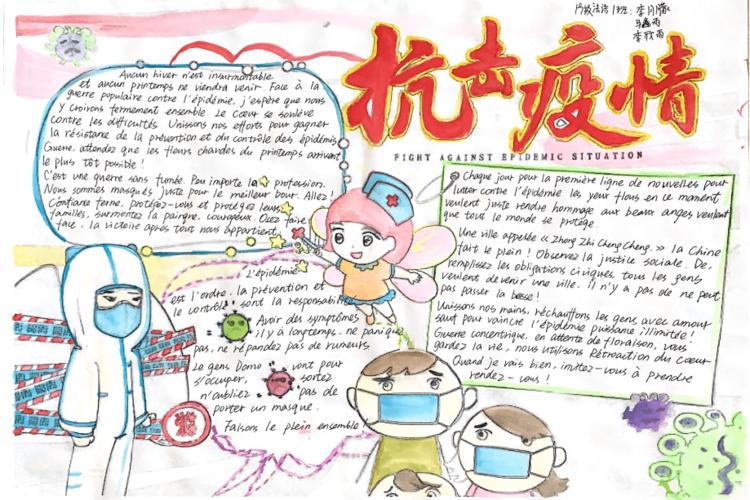 法语1班:
抗击疫情
FIGHT AGAINST EPIDEMIC SITUATION
Aucun hiver n'est insurmontable
et aucun printemps ne viendra venir. Face à la
guerre populaire contre l'épidémie, j'espère que nous
y croirons fermement ensemble. Le cœur se soulève
contre les difficultés. Unissons nos efforts pour gagner
la résistance de la prévention et du contrôle des épidémis
Guerre, attendez que les fleurs chaudes du printemps arrivent
le plus tôt possible!
C'est une guerre sans fumée. Peu importe la profession.
Nous sommes masqués juste pour le meilleur jour. Allez!
Confiance ferme, protégez-vous et protégez leurs
familles, surmontez la panique, courageux. Osez faire
face, la victoire après tout nous appartient.
L'épidémie
est l'ordre, la prévention et
le contrôle sont la responsabilité
Avoir des symptômes
il y a longtemps, ne panique
pas, ne répandez pas de rumeurs
Le gens Domo vont pour
s'occuper, sortez
n'oubliez pas de
porter un masque.
Faisons le plein ensemble!
Chaque jour pour la première ligne de nouvelles pour
lutter contre l'épidémie les yeux flous en ce moment
veulent juste rendre hommage aux beaux anges veulent
que tout le monde se protège.
Une ville appelée «Zhong Zhi Cheng Cheng.» la Chine
fait le plein! Observez la justice sociale. De,
remplissez les obligations civiques, tous les gens
veulent devenir une ville. il n'y a pas de ne peut
pas passer la basse!
Unissons nos mains, réchauffons les gens avec amour
saut pour vaincre l'épidémie puissante illimitée!
Guerre concentrique, en attente de floraison, vous
gardez la vie, nous utilisons Rétroaction du cœur
Quand je vais bien, invitez-vous à prendre
rendez-vous!